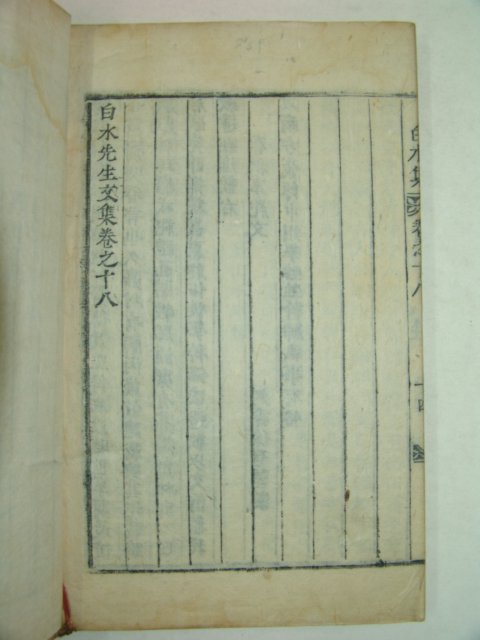 白水集 卷之十八 十四
白水先生文集卷之十八